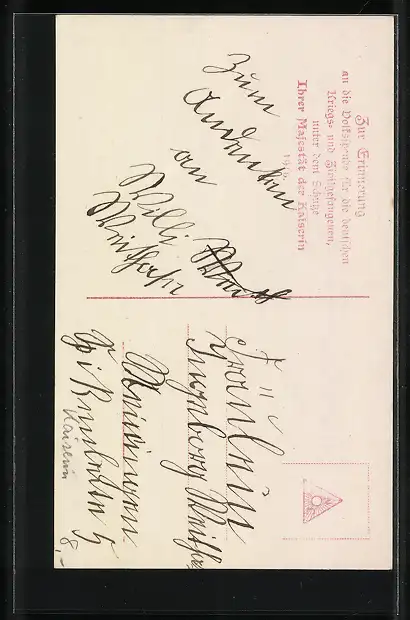 Zur Erinnerung
an die Volksspende für die deutschen
Kriegs- und Zivilgefangenen,
unter dem Schutze
Ihrer Majestät der Kaiserin
1916.
Zum
Andenken
an
Willi
Fräulein
Ingeborg
Meiningen
5
Kaiserin
8,-